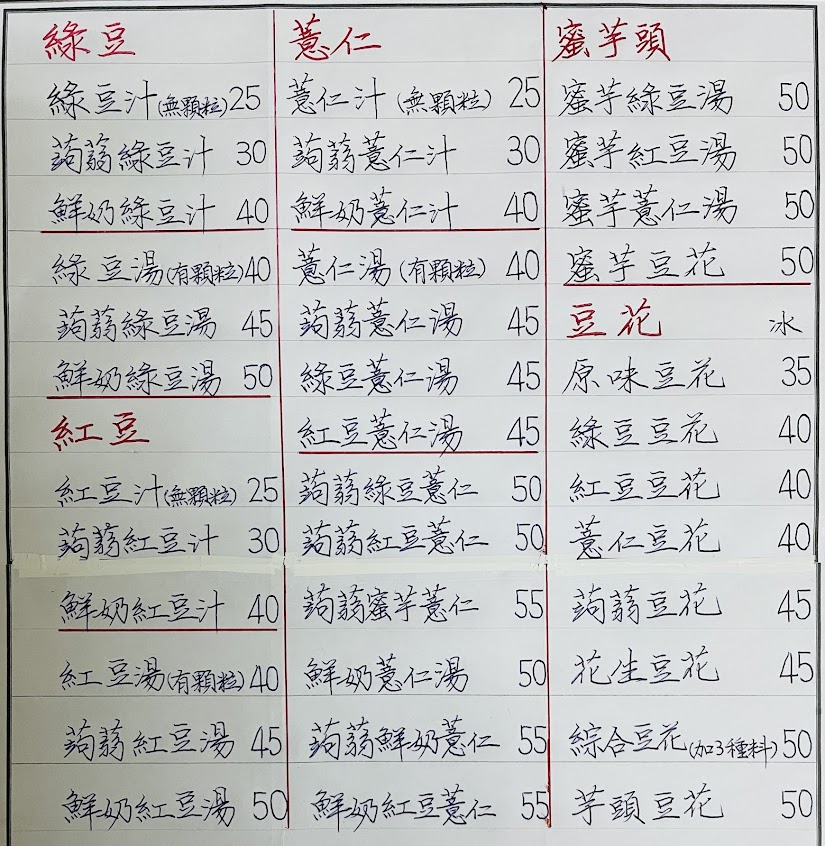 綠豆
綠豆汁(無顆粒)25
蒟蒻綠豆汁 30
鮮奶綠豆汁 40
綠豆湯(有顆粒)40
蒟蒻綠豆湯 45
鮮奶綠豆湯 50
紅豆
紅豆汁(無顆粒) 25
蒟蒻紅豆汁 30
鮮奶紅豆汁 40
紅豆湯(有顆粒)40
蒟蒻紅豆湯 45
鮮奶紅豆湯 50
薏仁
薏仁汁(無顆粒) 25
蒟蒻薏仁汁 30
鮮奶薏仁汁 40
薏仁湯(有顆粒) 40
蒟蒻薏仁湯 45
綠豆薏仁湯 45
紅豆薏仁湯 45
蒟蒻綠豆薏仁 50
蒟蒻紅豆薏仁 50
蒟蒻蜜芋薏仁 55
鮮奶薏仁湯 50
蒟蒻鮮奶薏仁 55
鮮奶紅豆薏仁 55
蜜芋頭
蜜芋綠豆湯 50
蜜芋紅豆湯 50
蜜芋薏仁湯 50
蜜芋豆花 50
豆花 冰
原味豆花 35
綠豆豆花 40
紅豆豆花 40
薏仁豆花 40
蒟蒻豆花 45
花生豆花 45
綜合豆花(加3種料)50
芋頭豆花 50